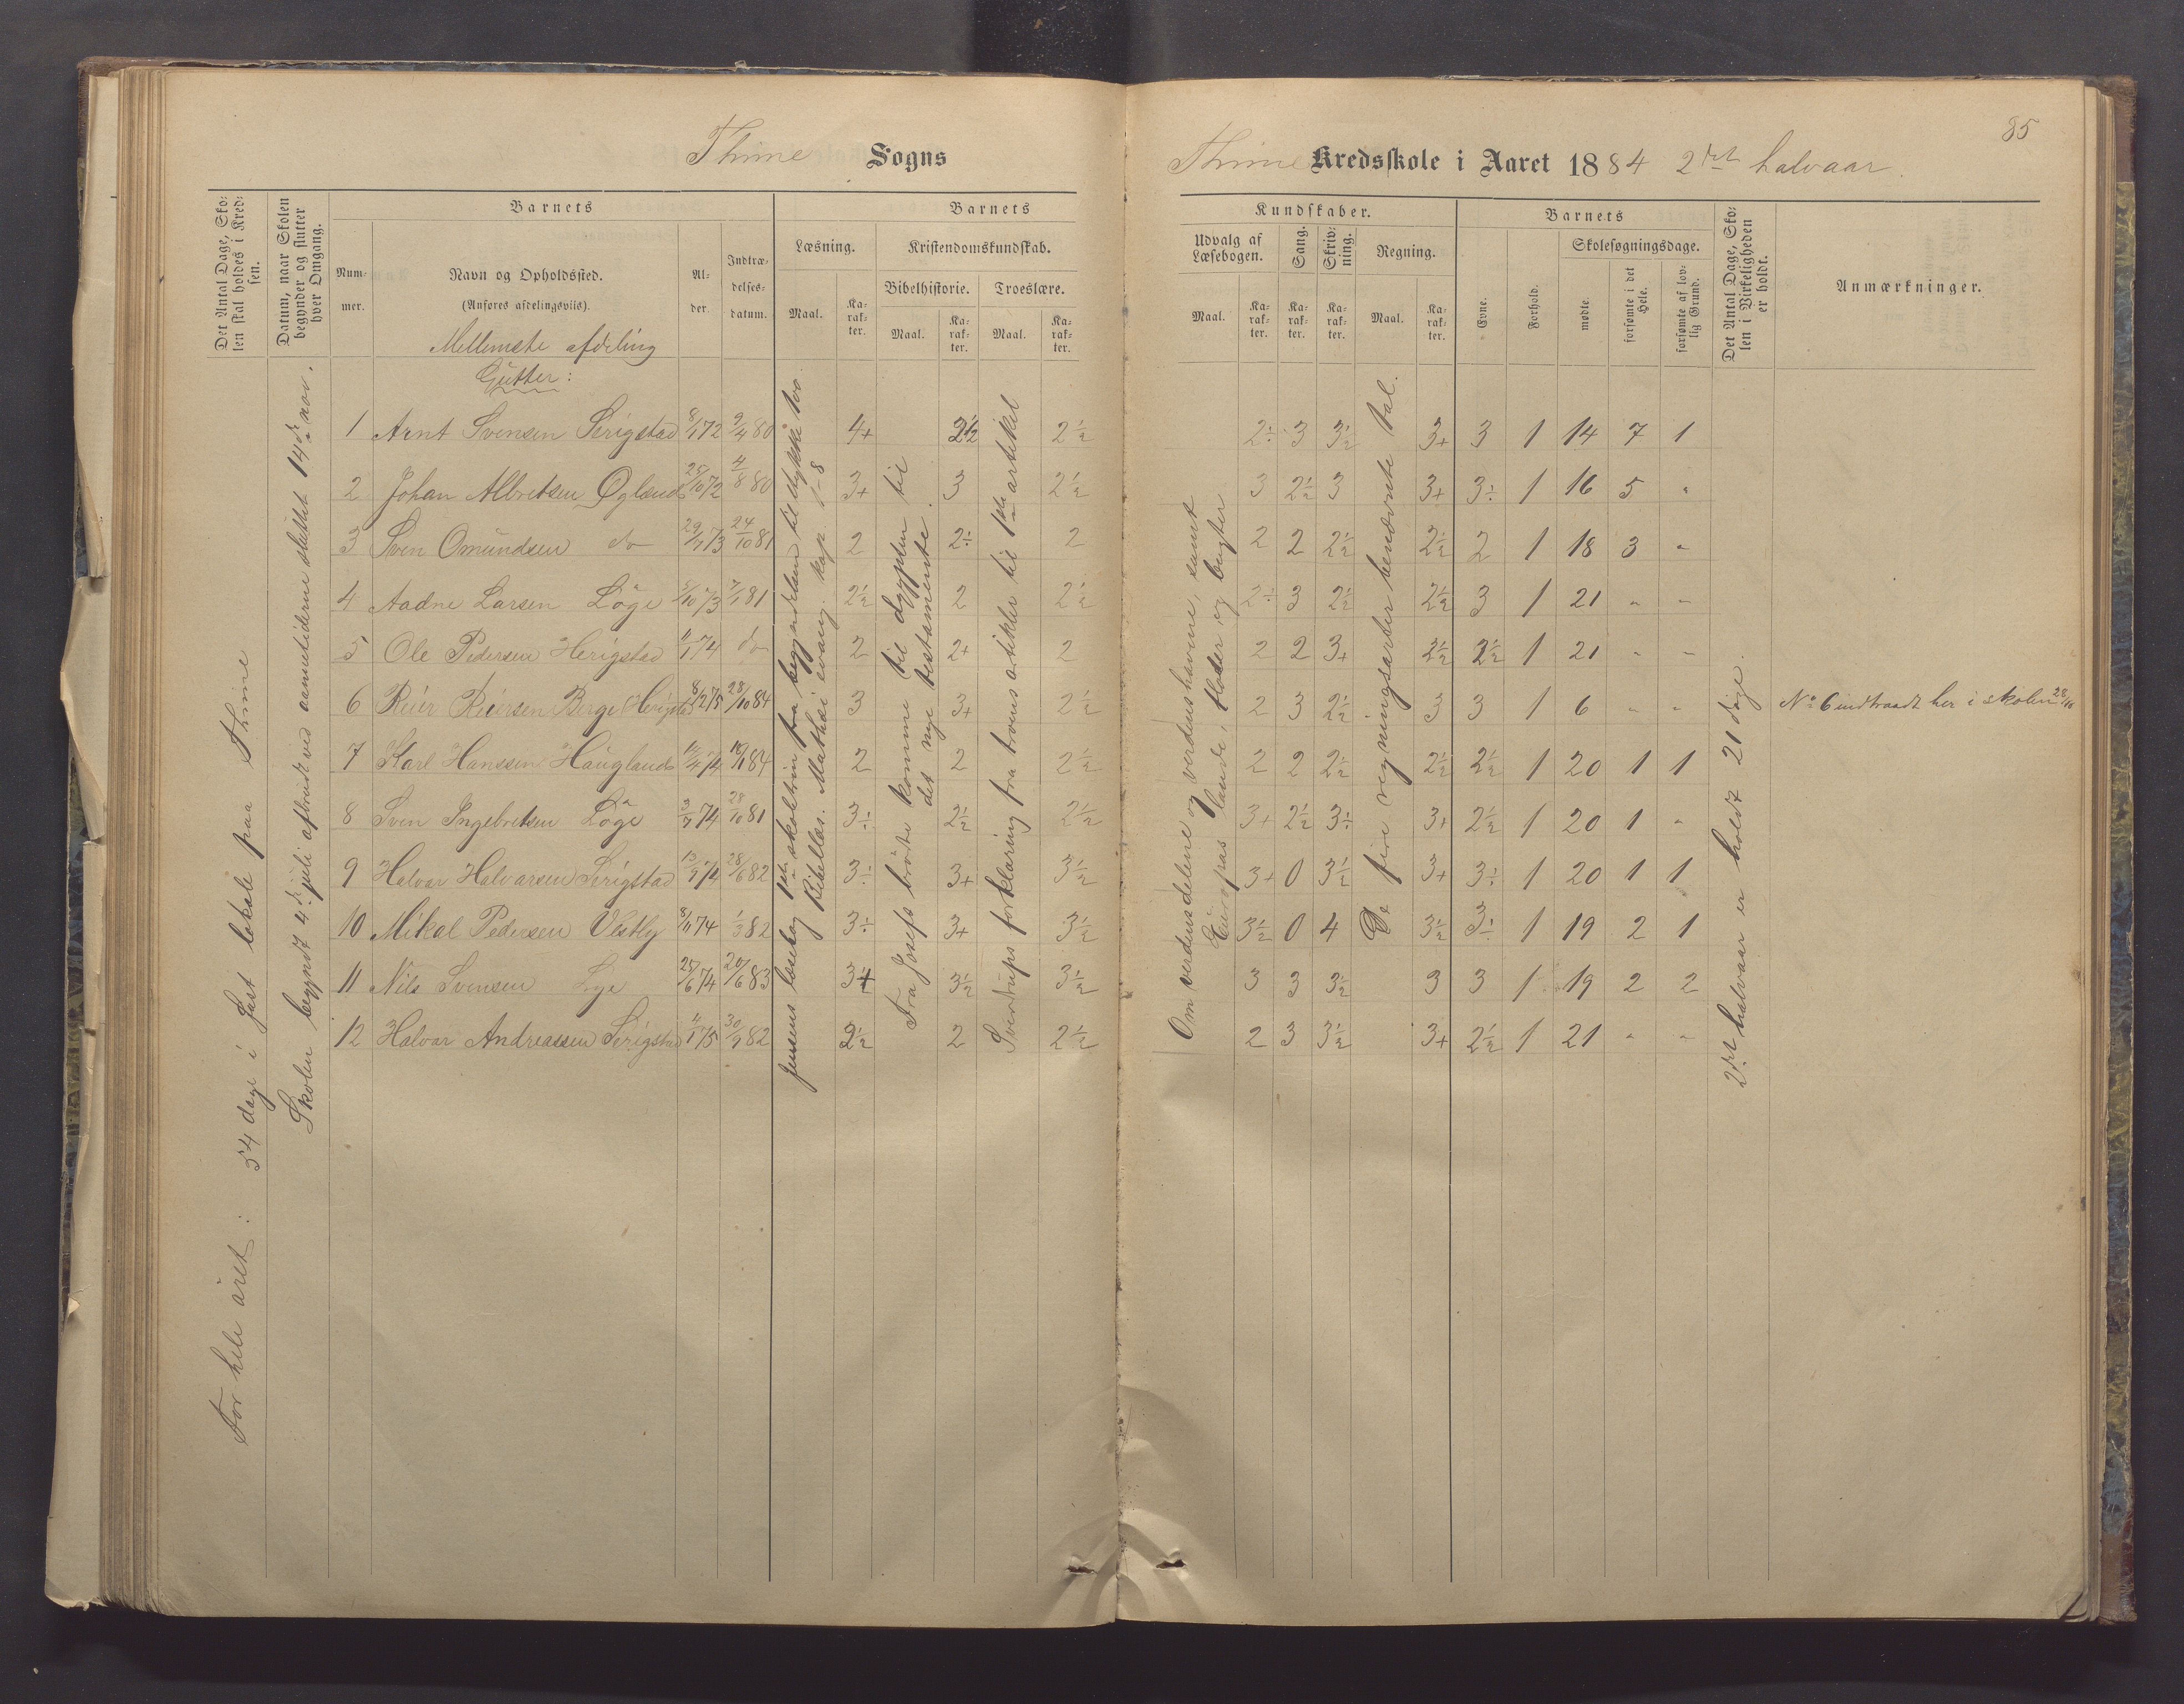 85
Thime Sogns
Thime Kredsskole i Aaret 1884 2det halvaar.
Det Antal Dage, Sko-
len skal holdes i Kred-
sen.
Datum, naar Skolen
begynder og slutter
hver Omgang.
Barnets
Num-
mer.
Navn og Opholdssted.
(Anføres afdelingsviis).
Al-
der.
Indtræ-
delses-
datum.
Barnets
Læsning.
Maal.
Ka-
rak-
ter.
Kristendomskundskab.
Bibelhistorie.
Maal.
Ka-
rak-
ter.
Troeslære.
Maal.
Ka-
rak-
ter.
Kundskaber.
Udvalg af
Læsebogen.
Maal.
Ka-
rak-
ter.
Sang.
Ka-
rak-
ter.
Skriv-
ning.
Ka-
rak-
ter.
Regning.
Maal.
Ka-
rak-
ter.
Barnets
Evne.
Forhold.
Skolesøgningsdage.
mødte.
forsømte i det
Hele.
forsømte af lov-
lig Grund.
Det Antal Dage, Sko-
len i Virkeligheden
er holdt.
Anmærkninger.
For hele året: 54 dage i fast lokale paa Thime
Skolen begyndt 4de juli afbrudt ved aannetiderne sluttet 14de nov.
Mellemste afdeling
Gutter:
Jensens læsebog 1ste skoletrin fra begyndelsen til stykke 100.
Bibellæs. Mathæi evang. kap. 1-8
Fra Josefs brødre komme til Ægypten til
det nye testamente.
Sverdrups forklaring fra troens artikler til 1ste artikel
Om verdensdelene og verdenshavene, samt
Europas lande, floder og bugter
De fire regningsarter benævnte tal.
2det halvaar er holdt 21 dage.
1 Arnt Svensen Serigstad 8/1 72 9/4 80 4+ 2½ 2½ 2÷ 3 3½ 3+ 3 1 14 7 1
2 Johan Albretsen Øgland 25/10 72 4/8 80 3+ 3 2½ 3 2½ 3 3+ 3÷ 1 16 5 "
3 Sven Omundsen do 29/7 73 24/10 81 2 2÷ 2 2 2 2½ 2½ 2 1 18 3 "
4 Aadne Larsen Löge 5/10 73 7/1 81 2½ 2 2½ 2÷ 3 2½ 2½ 3 1 21 " "
5 Ole Pedersen Herigstad 11/1 74 do 2 2+ 2 2 2 3+ 2½ 2½ 1 21 " "
6 Reier Reiersen Berge Herigstad 8/2 75 28/10 84 3 3+ 2½ 2 3 2½ 3 3 1 6 " " No 6 indtraadt her i skolen 28/10
7 Karl Hanssen Haugland 14/4 74 84 2 2 2½ 2 2 2½ 2½ 2½ 1 20 1 1
8 Sven Ingebretsen Löge 3/7 74 28/10 81 3÷ 2½ 2½ 3+ 2½ 3÷ 3+ 2½ 1 20 1 "
9 Halvor Halvorsen Serigstad 74 28/6 82 3÷ 3+ 3½ 3+ 0 3½ 3+ 3÷ 1 20 1 1
10 Mikal Pedersen Vestly 8/11 74 1/3 82 3÷ 3+ 3½ 3½ 0 4 3½ 3÷ 1 19 2 1
11 Nils Svensen Lye 25/6 74 20/6 83 3+ 3½ 3½ 3 3 3½ 3 3 1 19 2 2
12 Halvor Andreassen Serigstad 4/1 75 30/9 82 2½ 2 2½ 2 3 3½ 3+ 2½ 1 21 " "